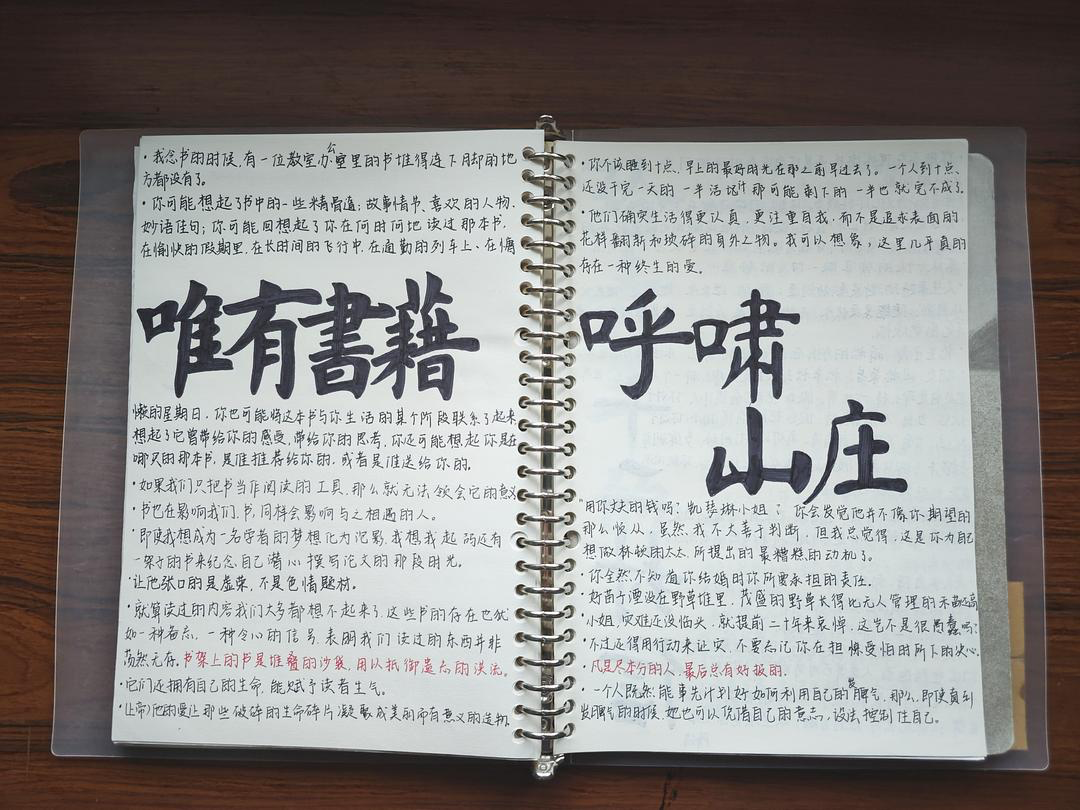 ·我念书的时候，有一位教室办公室里的书堆得连下月却的地
方都没有了。
·你可能想起了书中的一些精骨道；故事情节、喜欢的人物.
妙语佳句；你可能回想起了你在何时何地读过那本书，
在愉快的假期里，在长时间的飞行中，在通勤的列车上、在慵
唯有書藉
懒的星期日，你也可能将这本书与你生活的某个阶段联系了起来
想起了它曾带给你的感受，带给你的思考，你还可能想起你是在
哪买的那本书，是谁推荐给你的，或者是谁送给你的。
·如果我们只把书当作阅读的工具，那么就无法领会它的意义
·书也在影响我们，书，同样会影响与之相遇的人。
·即使我想成为一名学者的梦想化为泡影，我想我起码还有
一架子的书来纪念自己潜心撰写论文的那段时光。
·让他张口的是虚荣，不是色情题材。
·就算读过的内容我们大多都想不起来了，这些书的存在也犹
如一种备忘，一种令心的信号，表明我们读过的东西并非
荡然无存。书架上的书是堆叠的沙袋，用以抵御遗忘的洪流。
·它们还拥有自己的生命，能赋予读者生气。
·让他的爱让那些破碎的生命碎片凝聚成美丽而有意义的造物.
·你不该睡到十点，早上的最好时光在那之前早过去了。一个人到十点、
还没干完一天的一半活计，那可能剩下的一半也就完不成了。
·他们确实生活得更认真，更注重自我，而不是追求表面的
花样翻新和琐碎的身外之物。我可以想象，这里几乎真的
存在一种终生的爱。
呼啸
山庄
·用你丈夫的钱吗？凯瑟琳小姐？你会发觉他并不像你期望的
那么顺从，虽然我不大善于判断，但我总觉得，这是你为自己
想做林顿的太太所提出的最糟糕的动机了。
·你全然不知道你结婚时你所要承担的责任。
·好苗子湮没在野草堆里，茂盛的野草长得比无人管理的禾苗还高
·小姐，灾难还没临头，就提前二十年来哀悼，这岂不是很愚蠢吗？
·不过还得用行动来证实，不要忘记你在担惊受怕时所下的决心.
·凡是尽本分的人，最后总有好报的.
·一个人既然能事先计划好如何利用自己的发脾气，那么，即使真到
发脾气的时候，她也可以凭借自己的意志，设法控制住自己。